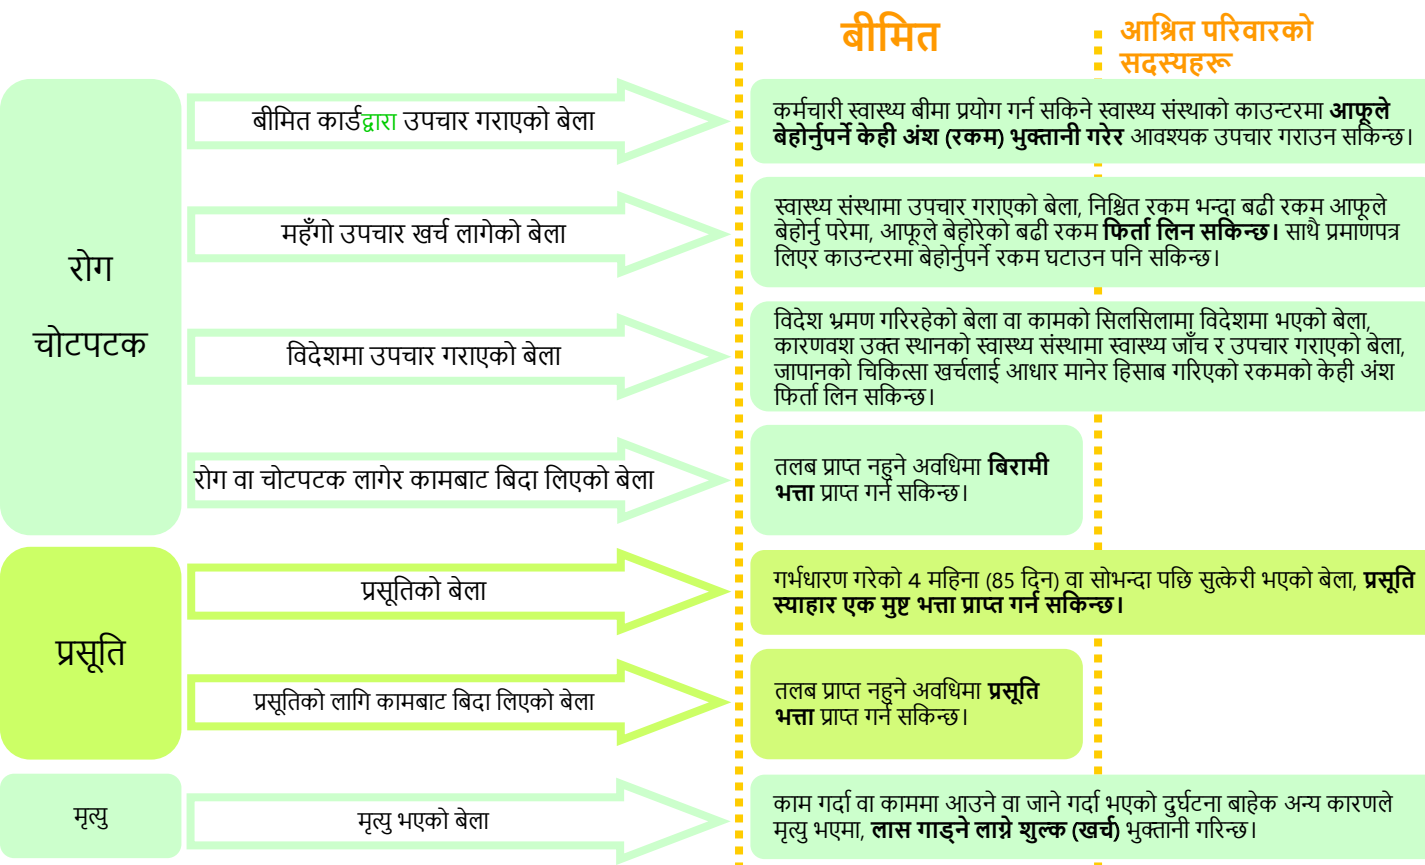 बीमित
आश्रित परिवारको
सदस्यहरू
रोग
चोटपटक
बीमित कार्डद्वारा उपचार गराएको बेला
कर्मचारी स्वास्थ्य बीमा प्रयोग गर्न सकिने स्वास्थ्य संस्थाको काउन्टरमा आफूले
बेहोर्नुपर्ने केही अंश (रकम) भुक्तानी गरेर आवश्यक उपचार गराउन सकिन्छ।
महँगो उपचार खर्च लागेको बेला
स्वास्थ्य संस्थामा उपचार गराएको बेला, निश्चित रकम भन्दा बढी रकम आफूले
बेहोर्नु परेमा, आफूले बेहोरेको बढी रकम फिर्ता लिन सकिन्छ। साथै प्रमाणपत्र
लिएर काउन्टरमा बेहोर्नुपर्ने रकम घटाउन पनि सकिन्छ।
विदेशमा उपचार गराएको बेला
विदेश भ्रमण गरिरहेको बेला वा कामको सिलसिलामा विदेशमा भएको बेला,
कारणवश उक्त स्थानको स्वास्थ्य संस्थामा स्वास्थ्य जाँच र उपचार गराएको बेला,
जापानको चिकित्सा खर्चलाई आधार मानेर हिसाब गरिएको रकमको केही अंश
फिर्ता लिन सकिन्छ।
रोग वा चोटपटक लागेर कामबाट बिदा लिएको बेला
तलब प्राप्त नहुने अवधिमा बिरामी
भत्ता प्राप्त गर्न सकिन्छ।
प्रसूति
प्रसूतिको बेला
गर्भधारण गरेको 4 महिना (85 दिन) वा सोभन्दा पछि सुत्केरी भएको बेला, प्रसूति
स्याहार एक मुष्ट भत्ता प्राप्त गर्न सकिन्छ।
प्रसूतिको लागि कामबाट बिदा लिएको बेला
तलब प्राप्त नहुने अवधिमा प्रसूति
भत्ता प्राप्त गर्न सकिन्छ।
मृत्यु
मृत्यु भएको बेला
काम गर्दा वा काममा आउने वा जाने गर्दा भएको दुर्घटना बाहेक अन्य कारणले
मृत्यु भएमा, लास गाड्ने लाग्ने शुल्क (खर्च) भुक्तानी गरिन्छ।